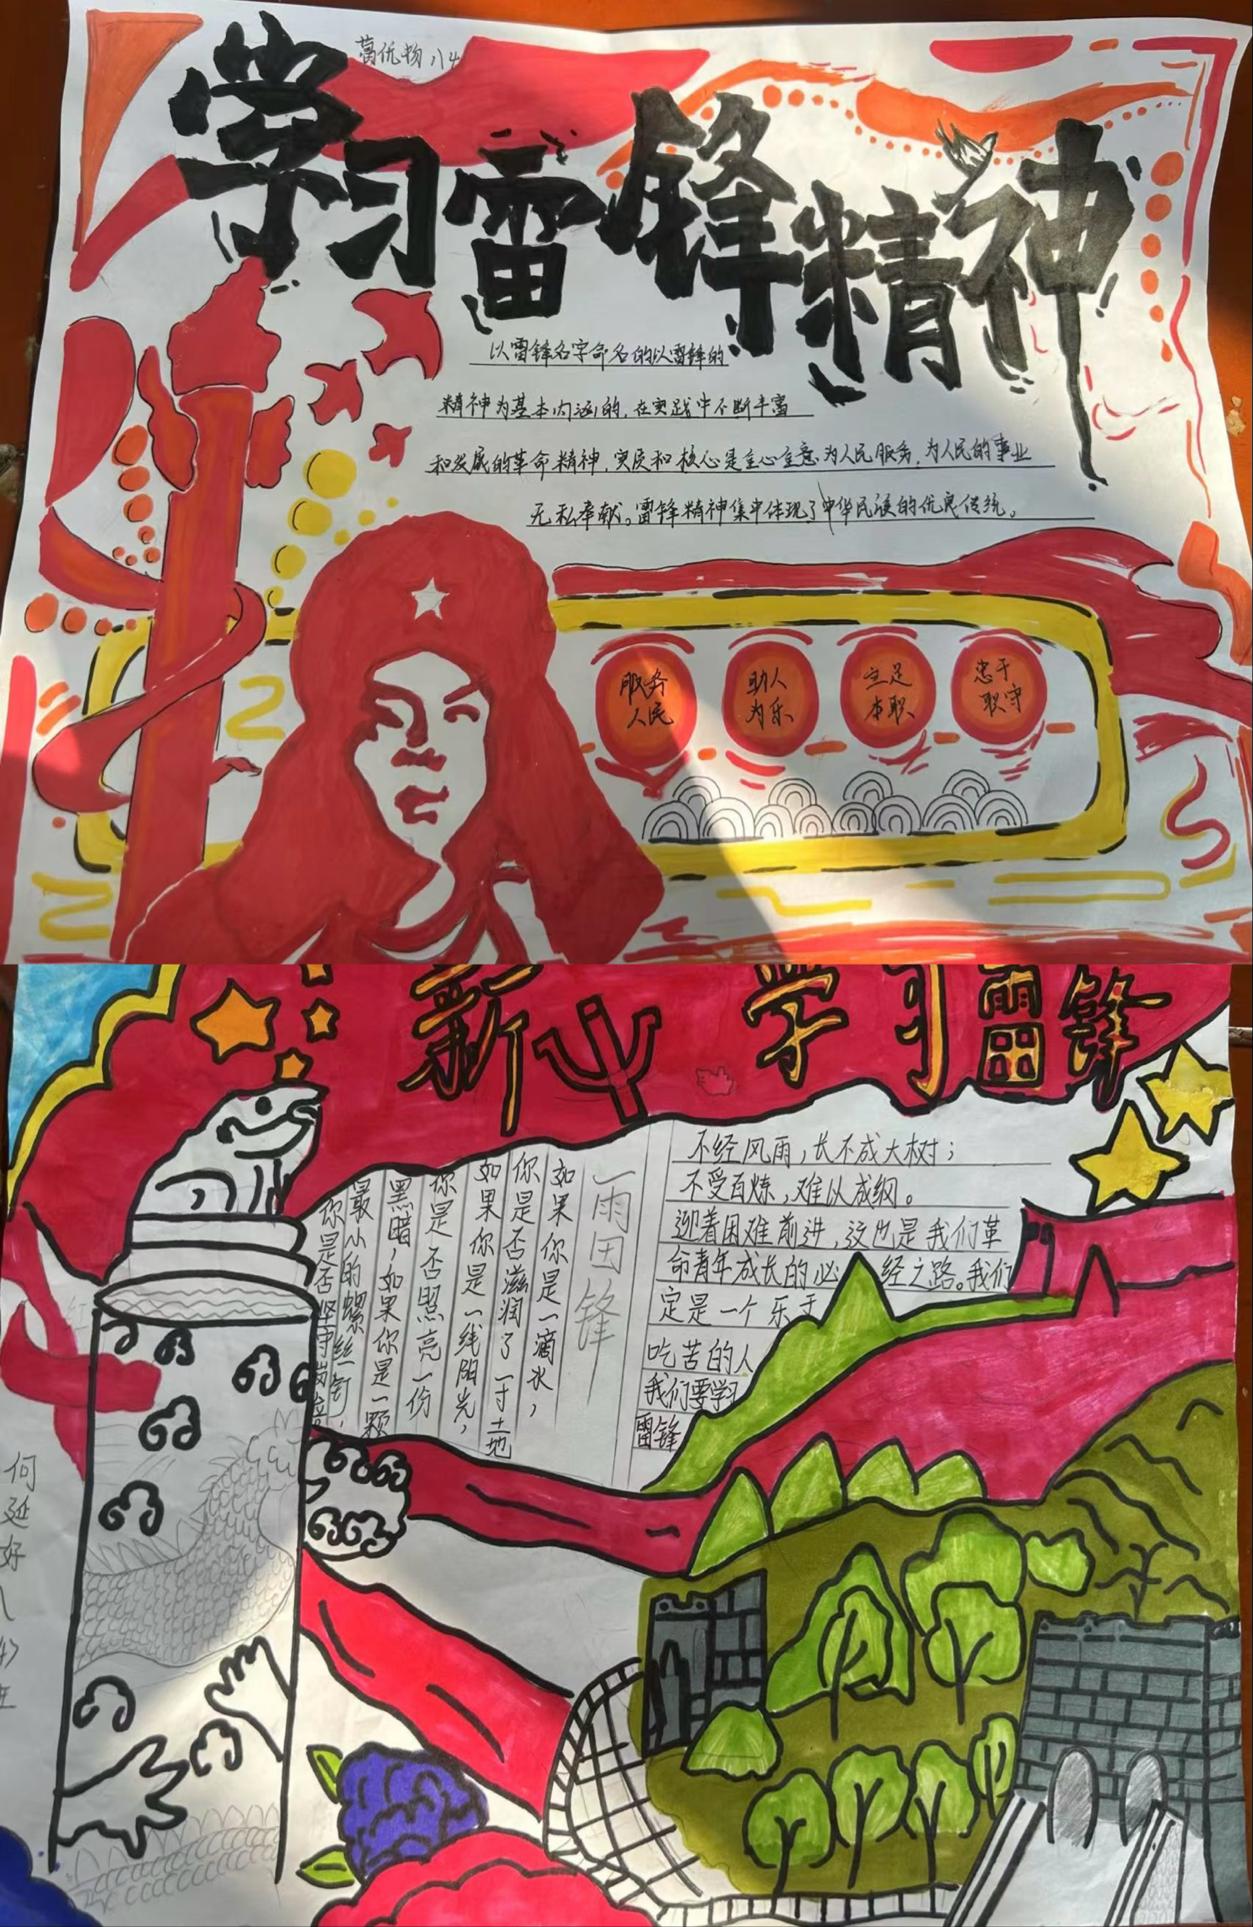 学习雷锋精神
以雷锋名字命名的以雷锋的
精神为基本内涵的,在实践中不断丰富
和发展的革命精神,实质和核心是全心全意为人民服务,为人民的事业
无私奉献。雷锋精神集中体现了中华民族的优良传统。
服务
人民
助人
为乐
立足
本职
忠于
职守
学习雷锋
不经风雨,长不成大树;
不受百炼,难以成钢。
迎着困难前进,这也是我们革
命青年成长的必 经之路。我们
定是一个乐于
吃苦的人
我们要学习
雷锋
一雨田锋
如果你是一滴水,
你是否滋润了一寸土地
如果你是一线阳光,
你是否照亮一份
黑暗,如果你是一颗
最小的螺丝钉,
你是否坚守岗位